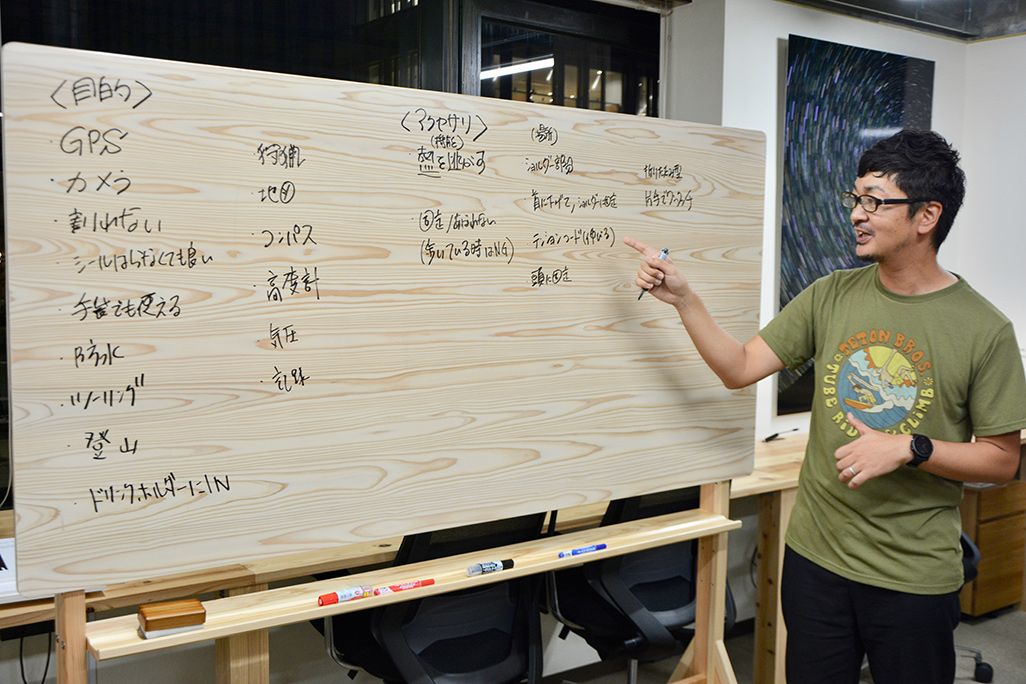 〈目的〉
GPS
・カメラ
・割れない
・シールはらなくても良い
・手袋でも使える
・防水
・ツーリング
・登山
・ドリンクホルダーにIN
・狩猟
・地図
・コンパス
・高度計
・気圧
・記録
〈アクセサリ〉
(機能)
・熱を逃がす
・固定/あばれない
(歩いている時はNG)
(場所)
ショルダー部分
首に下げて、ショルダーに固定
テンションコード(ゆびる)
頭に固定
折りたたみ型
片手でワンタッチ
TETON BROS.
TUBE RIDE CLIMB